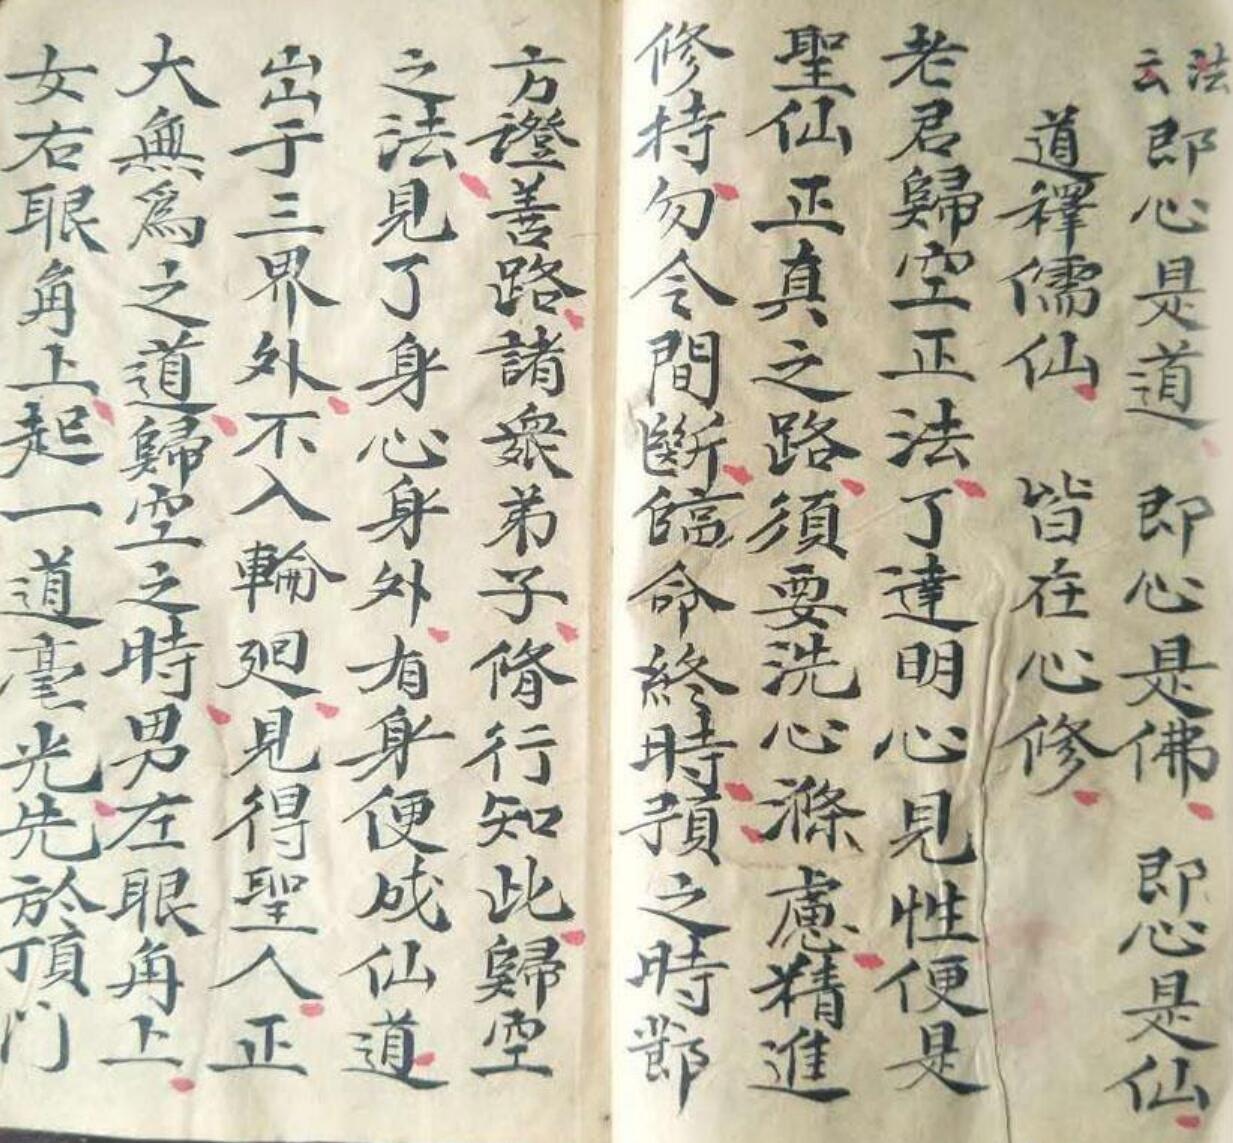 法云即心是道 即心是佛 即心是仙
道釋儒仙 皆在心修
老君歸空正法了達明心見性便是
聖仙正真之路須要洗心滌慮精進
修持勿令間斷臨命終時預之時鄧
方證善路諸衆弟子脩行知此歸空
之法見了身心身外有身便成仙道
出于三界外不入輪廻見得聖人正
大無為之道歸空之時男左眼角上
女右眼角上起一道毫光先於頂门